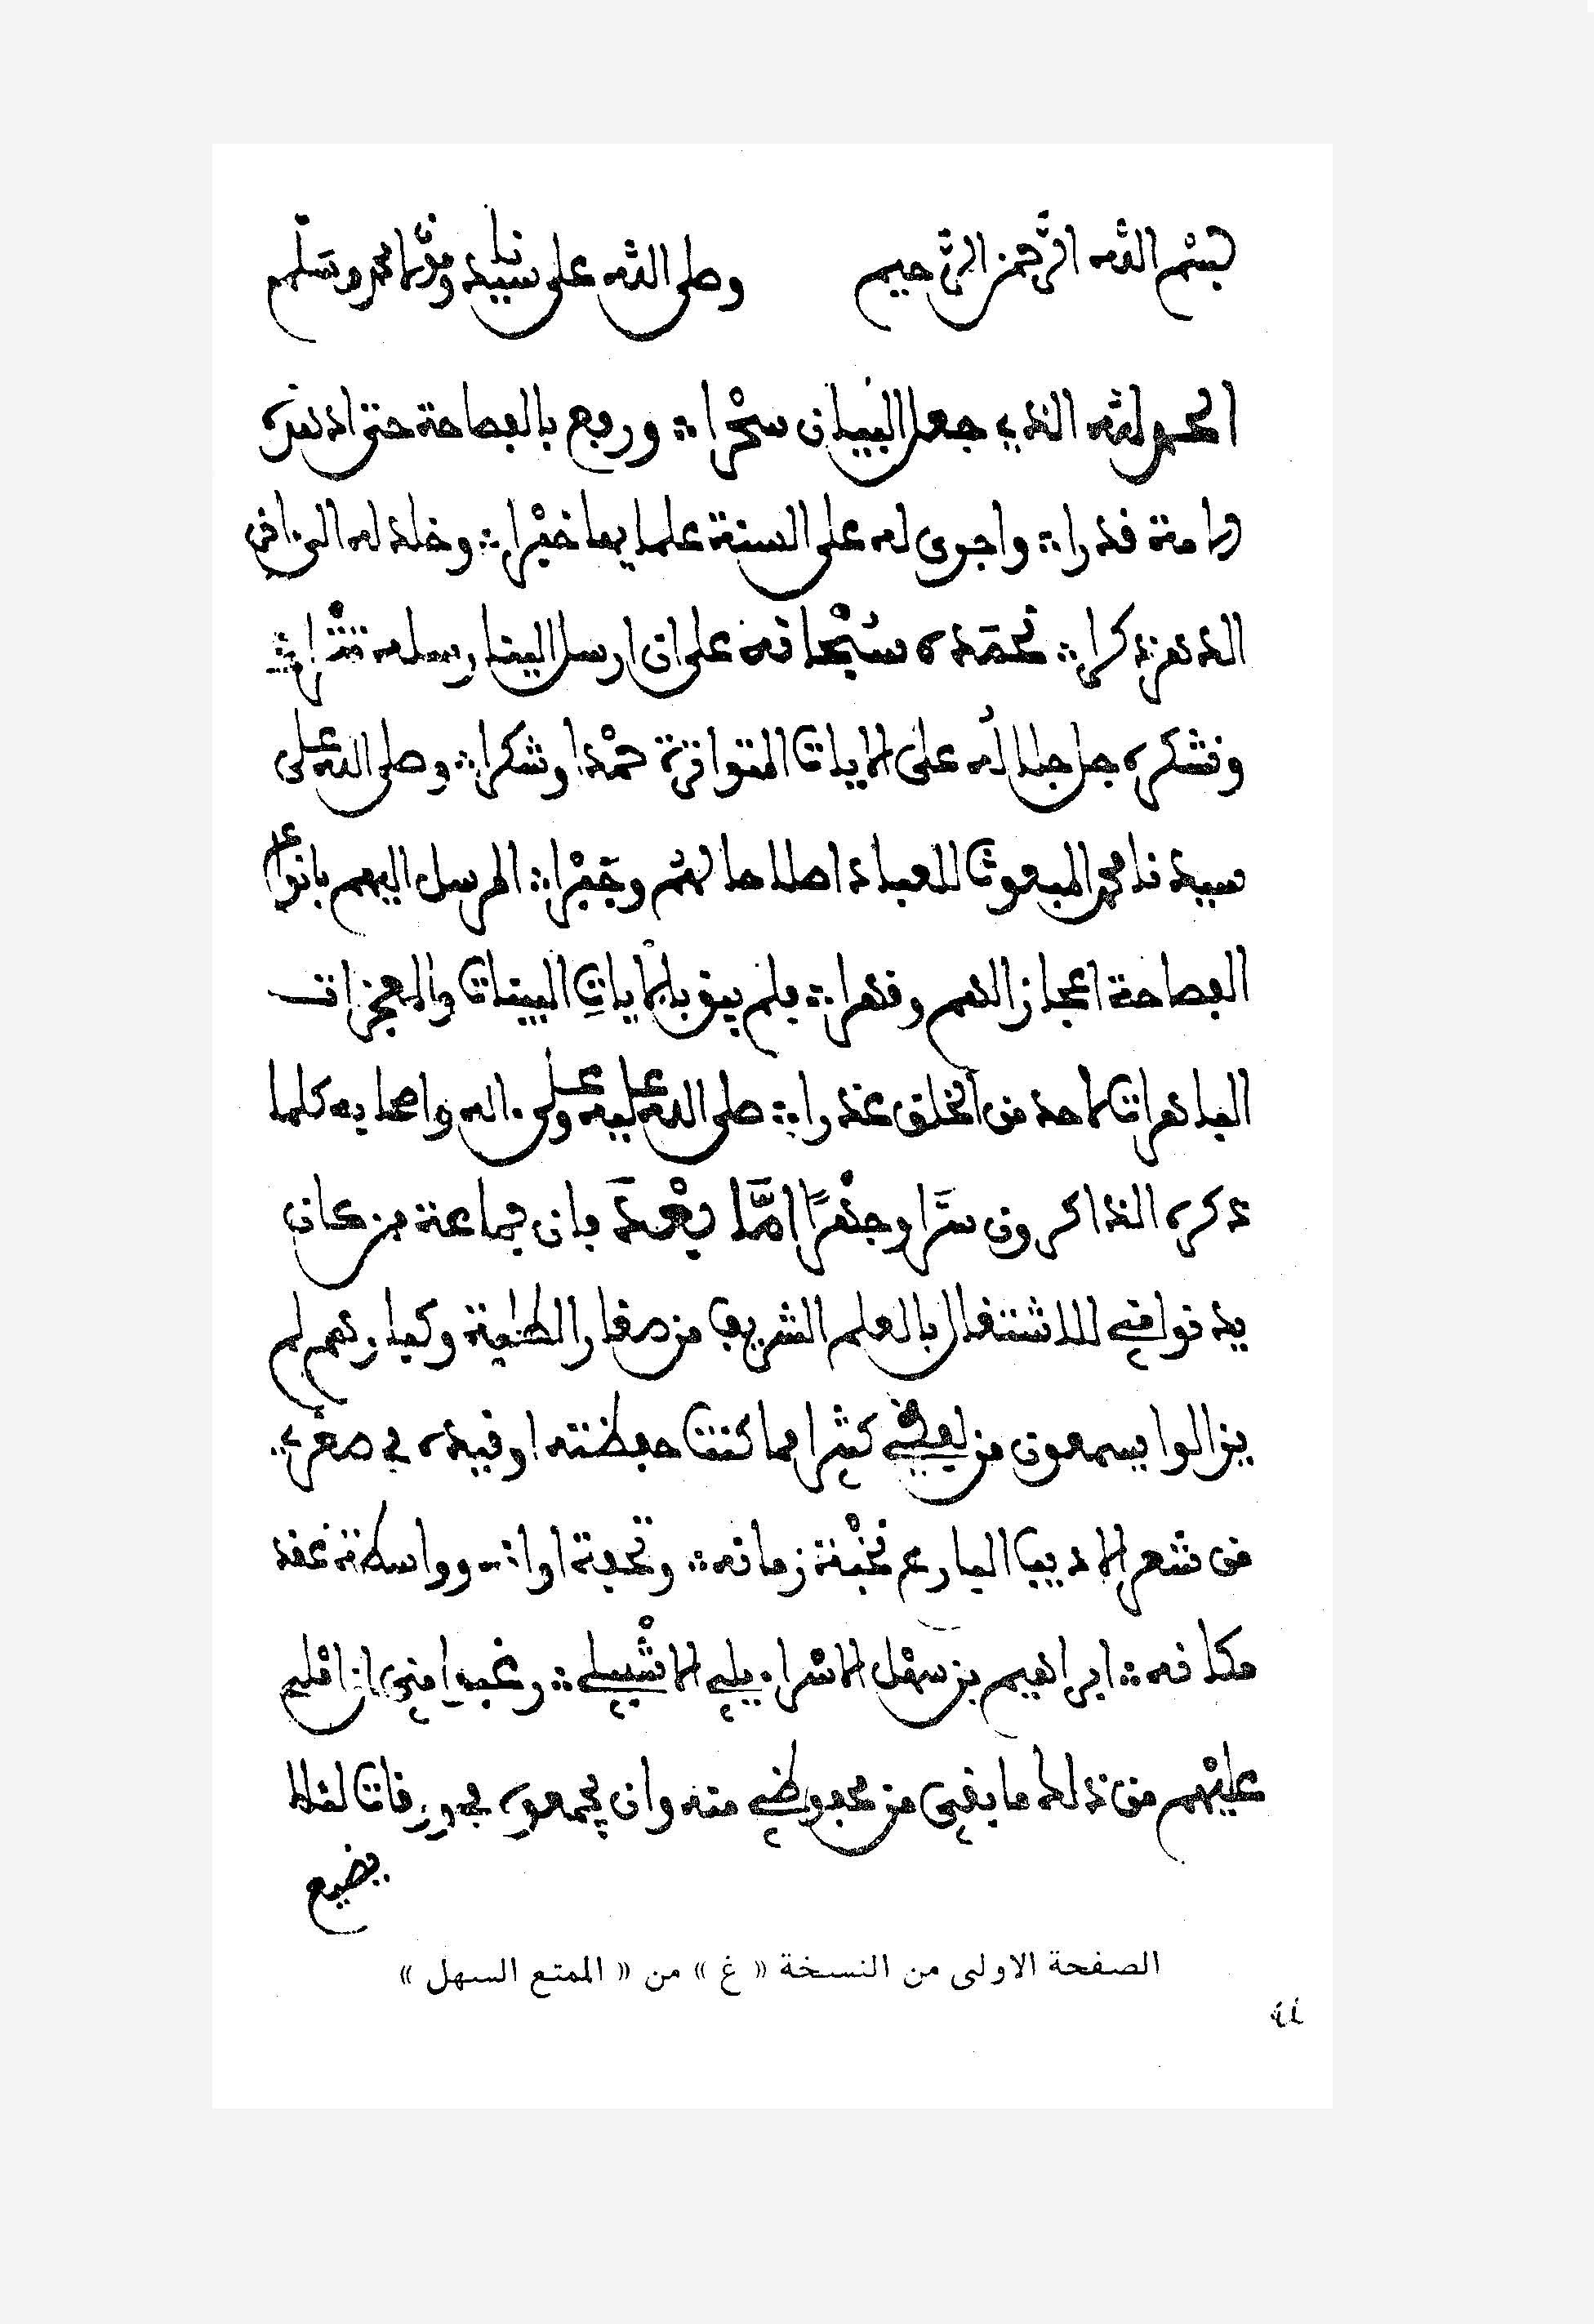 بسم الله الرحمن الرحيم وصلى الله على سيدنا ومولانا محمد وسلم
الحمد لله الذي جعل البيان سحرا ∴ ورفع بالفصاحة حتى اذهنه
قدرا ∴ واجرى له على السنة علمايها خيرا ∴ وخلد له الى اخر
الدهر ذكرا ∴ نحمده سبحانه على ان ارسل الينا رسله تترا ∴
ونشكره جل جلاله على الايات المتواترة حمدا وشكرا ∴ وصلى الله على
سيدنا محمد المبعوث للعباد اصلاحا لهم وجبرا ∴ المرسل اليهم بانواع
الفصاحة اعجازا لهم وقهرا ∴ فلم يبق بالايات البينات والمعجزات
الباهرات لاحد من الخلق عذرا ∴ صلى الله عليه وعلى ءاله واصحابه كلما
ذكره الذاكرون سرا وجهرا اما بعد فان جماعة من كان
يدنو لي للاشتغال بالعلم الشريف من صغار الطلبة وكبارهم لم
يزالوا يسمعون من لفظي كثيرا مما كنت حفظته او قيدته في صغري
من شعر الاديب البارع نخبة زمانه ∴ وتحفة اوانه ∴ وواسطة عقد
مكانه ∴ ابراهيم بن سهل الاسراءيلي الاشبيلي ∴ ورغبوا مني ان املي
عليهم من ذلك ما بقي من محفوظي منه وان يجمعوه في ورقات لئلا
يضيع
الصفحة الاولى من النسخة « غ » من « الممتع السهل »
٤٤